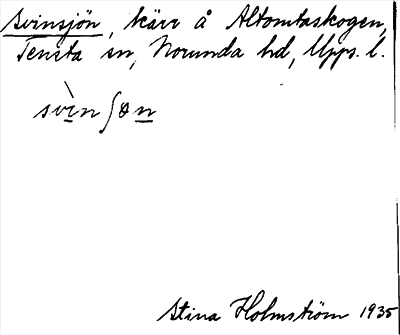 Svinsjön, kärr å Altomtaskogen,
Tensta sn, Norunda hd, Upps. l.
svìnʃøn
Stina Holmström 1935